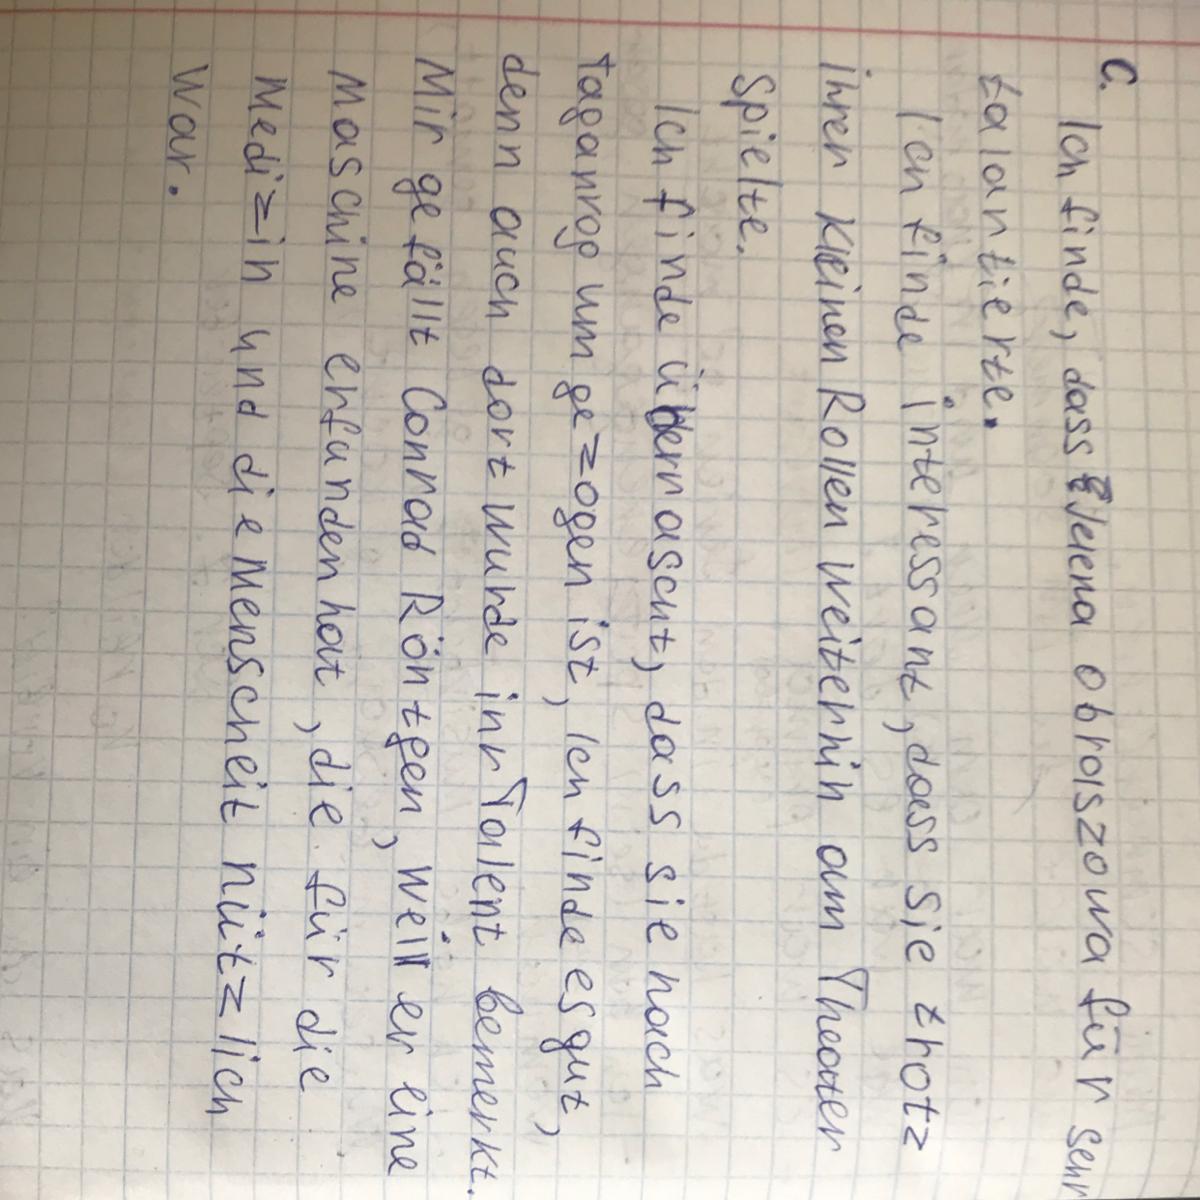 C. Ich finde, dass Elena obraszowa für sehr
talantierte.
Ich finde interessant, dass sie trotz
ihrer kleinen Rollen weiterhin am Theater
Spielte.
Ich finde überrascht, dass sie nach
Taganrog umgezogen ist, Ich finde es gut,
denn auch dort wurde ihr Talent bemerkt.
Mir gefällt Conrad Röntgen, weil er eine
Maschine erfunden hat, die für die
Medizin und die Menscheit nützlich
War.